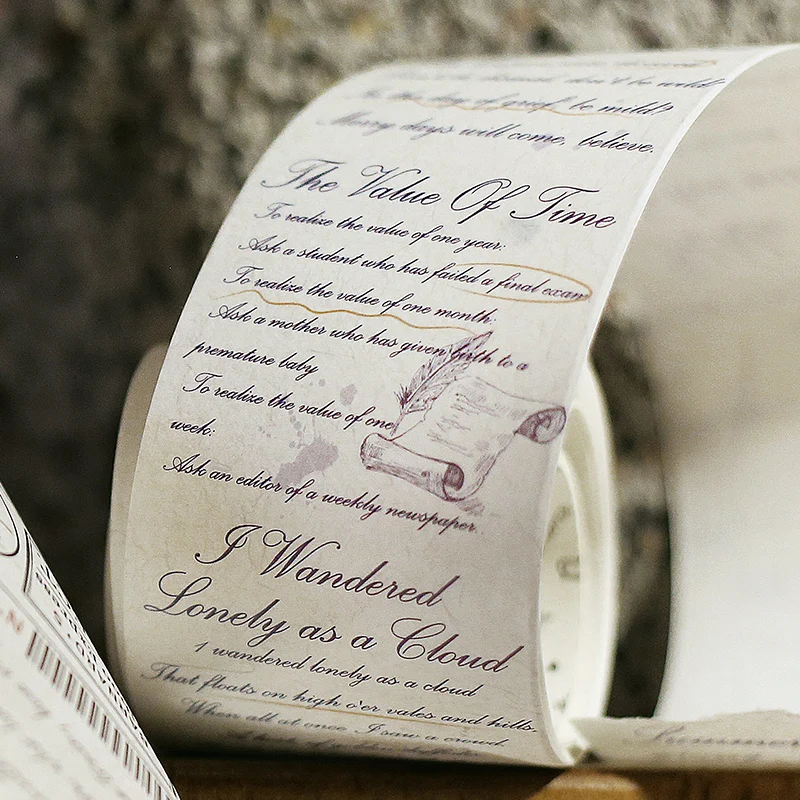 don't be wild
day of grief, be mild?
Merry days will come, believe.
The Value Of Time
To realize the value of one year:
Ask a student who has failed a final exam
To realize the value of one month:
Ask a mother who has given birth to a
premature baby
To realize the value of one
week:
Ask an editor of a weekly newspaper.
I Wandered
Lonely as a Cloud
I wandered lonely as a cloud
That floats on high o'er vales and hills,
When all at once I saw a crowd,
Summer